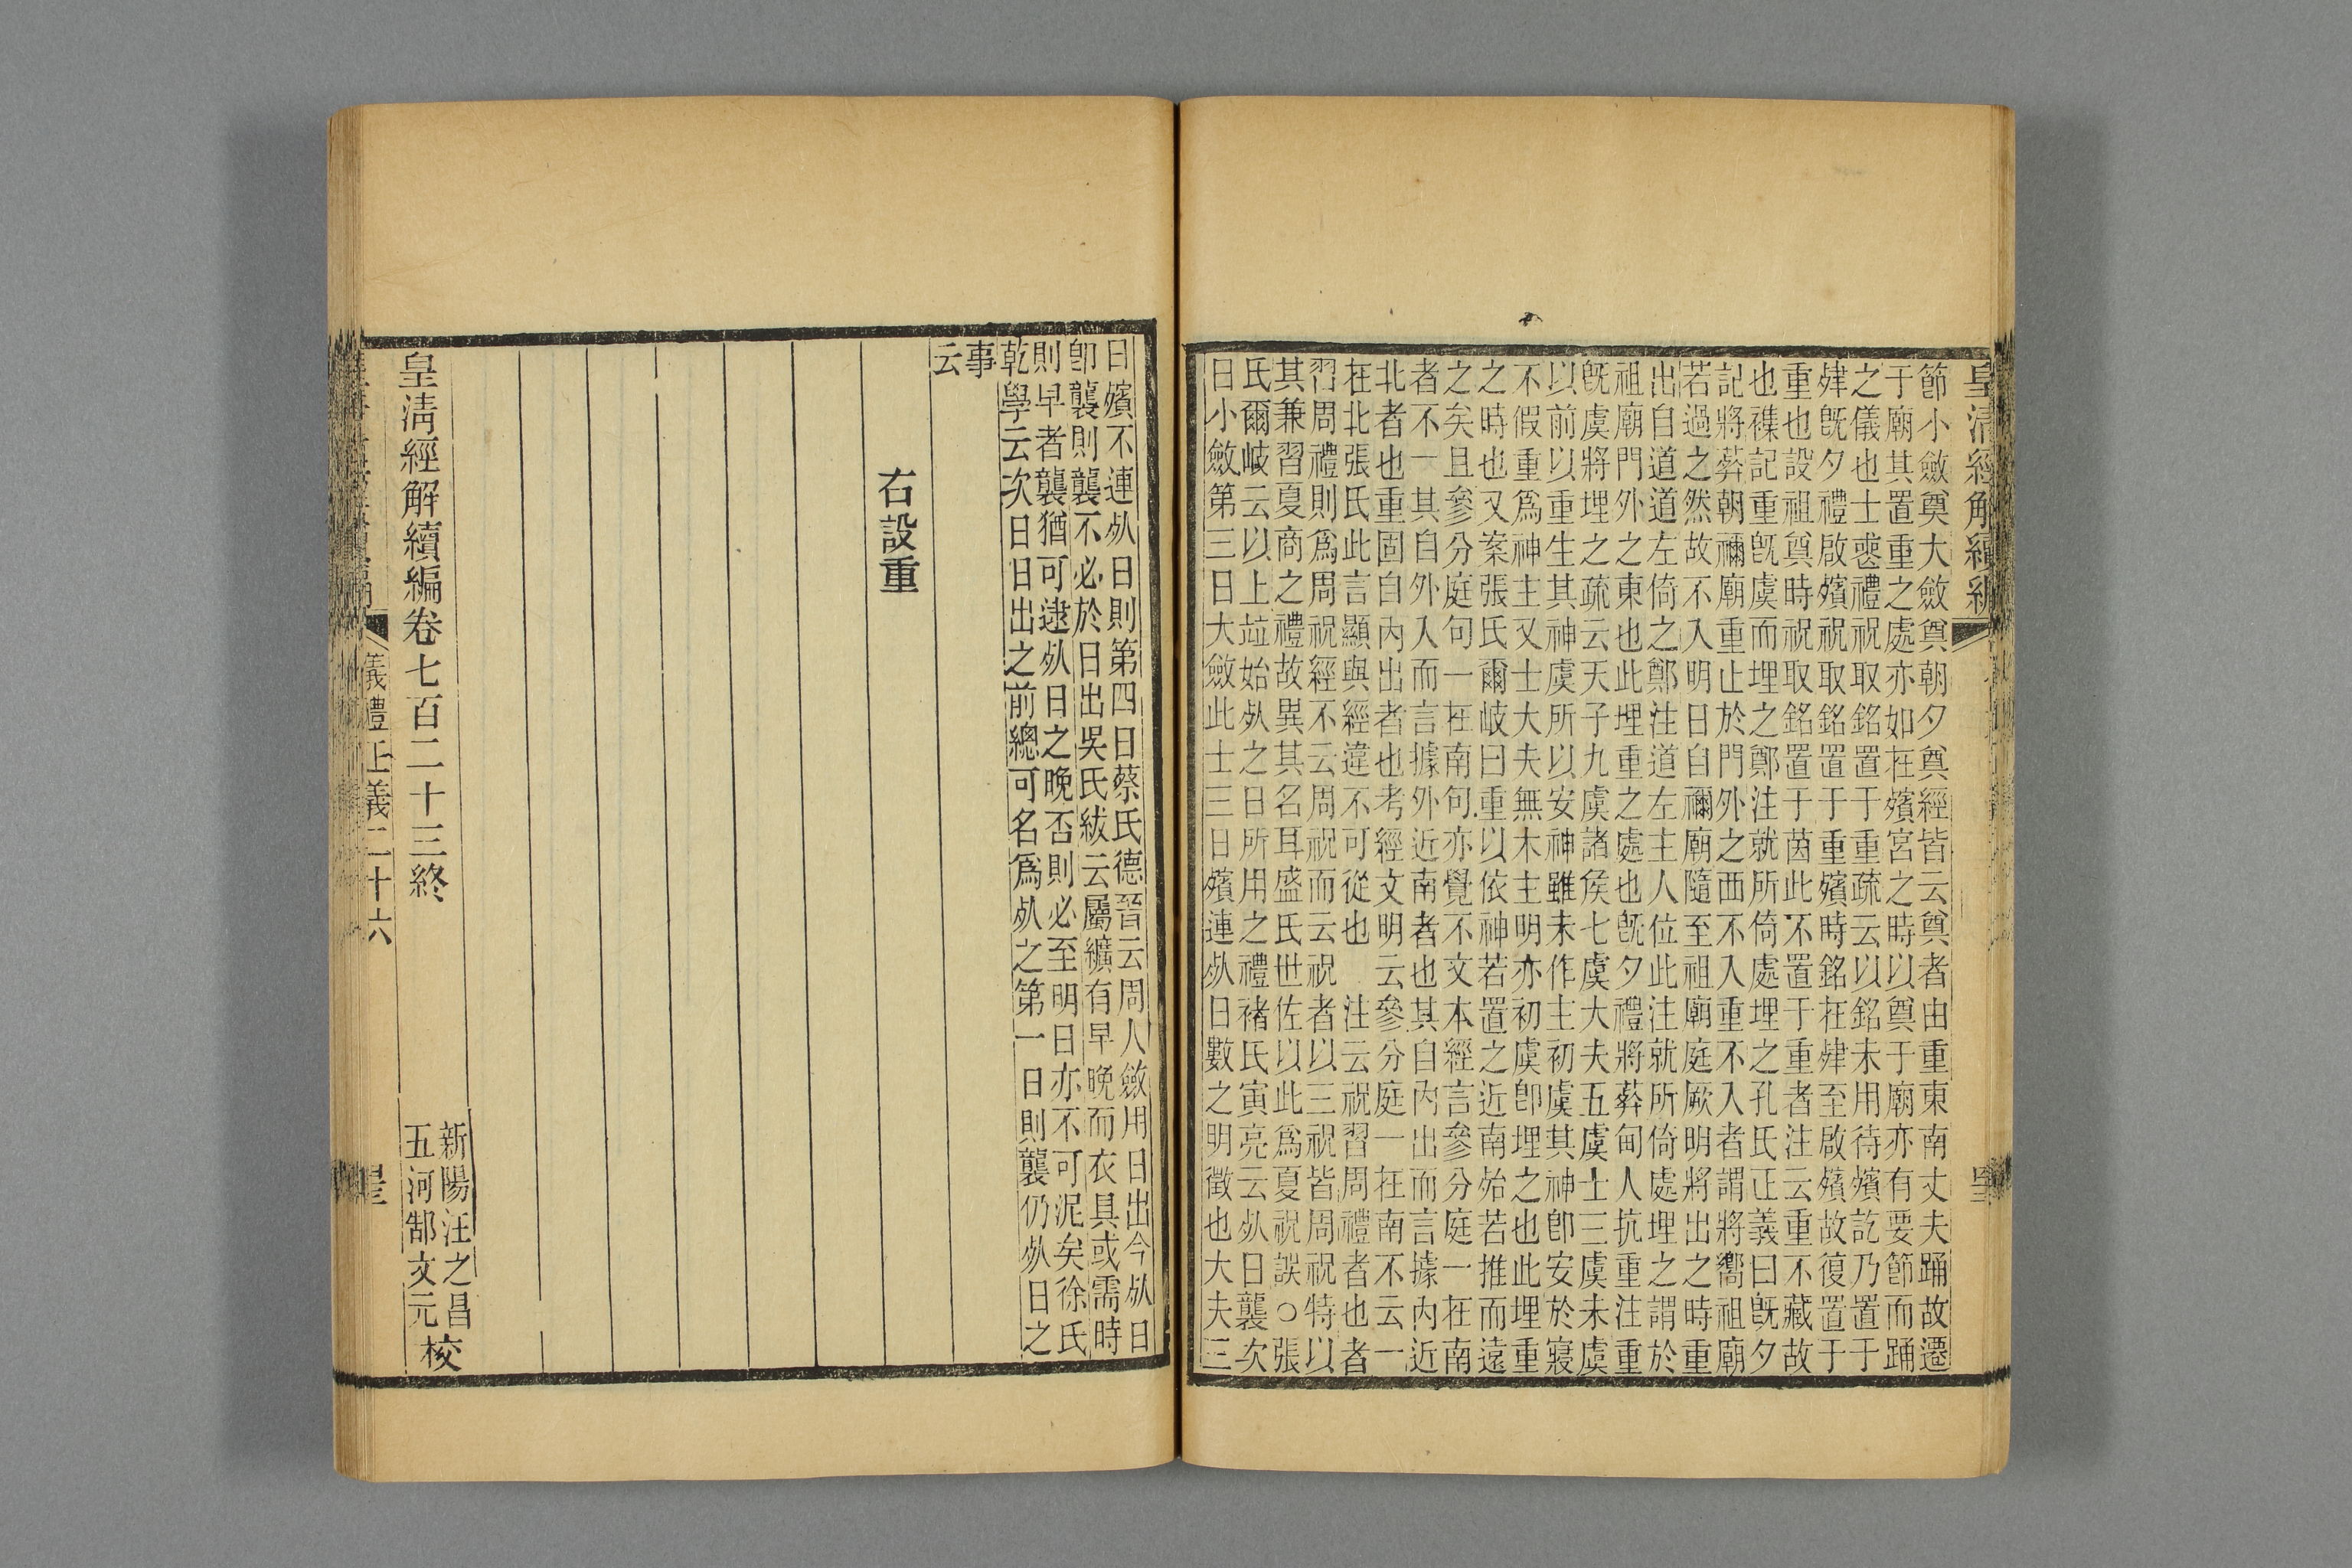 皇清經解續編
節小斂奠大斂奠朝夕奠經皆云奠者由重東南丈夫踊故遷
于廟其置重之處亦如在殯宮之時以奠于廟亦有要節而踊
之儀也士喪禮祝取銘置于重疏云以銘未用待殯訖乃置于
肂旣夕禮啟殯祝取銘置于重殯時銘在肂至啟殯故復置于
重也設祖奠時祝取銘置于茵此不置于重者注云重不藏故
也襍記重旣虞而埋之鄭注就所倚處埋之孔氏正義曰旣夕
記將葬朝禰廟重止於門外之西不入重不入者謂將嚮祖廟
若過之然故不入明日自禰廟隨至祖廟庭厥明將出之時重
出自道道左倚之鄭注道左主人位此注就所倚處埋之謂於
祖廟門外之東也此埋重之處也旣夕禮將葬甸人抗重注重
旣虞將埋之疏云天子九虞諸侯七虞大夫五虞士三虞未虞
以前以重生其神虞所以安神雖未作主初虞其神卽安於寢
不假重爲神主又士大夫無木主明亦初虞卽埋之也此埋重
之時也又案張氏爾岐曰重以依神若置之近南殆若推而遠
之矣且參分庭句一在南句亦覺不文本經言參分庭一在南
者不一其自外入而言據外近南者也其自內出而言據內近
北者也重固自內出者也考經文明云參分庭一在南不云一
在北張氏此言顯與經違不可從也 注云祝習周禮者也者
習周禮則爲周祝經不云周祝而云祝者以三祝皆周祝特以
其兼習夏商之禮故異其名耳盛氏世佐以此爲夏祝誤○張
氏爾岐云以上竝始𣦸之日所用之禮褚氏寅亮云𣦸日襲次
日小斂第三日大斂此士三日殯連𣦸日數之明徵也大夫三
日殯不連𣦸日則第四日蔡氏德晉云周人斂用日出今𣦸日
卽襲則襲不必於日出吳氏紱云屬纊有早晚而衣具或需時
則早者襲猶可逮𣦸日之晚否則必至明日亦不可泥矣徐氏
乾學云次日日出之前總可名爲𣦸之第一日則襲仍𣦸日之
事
云
右設重
皇淸經解續編卷七百二十三終
新陽汪之昌
五河郜文元
校
儀禮正義二十六